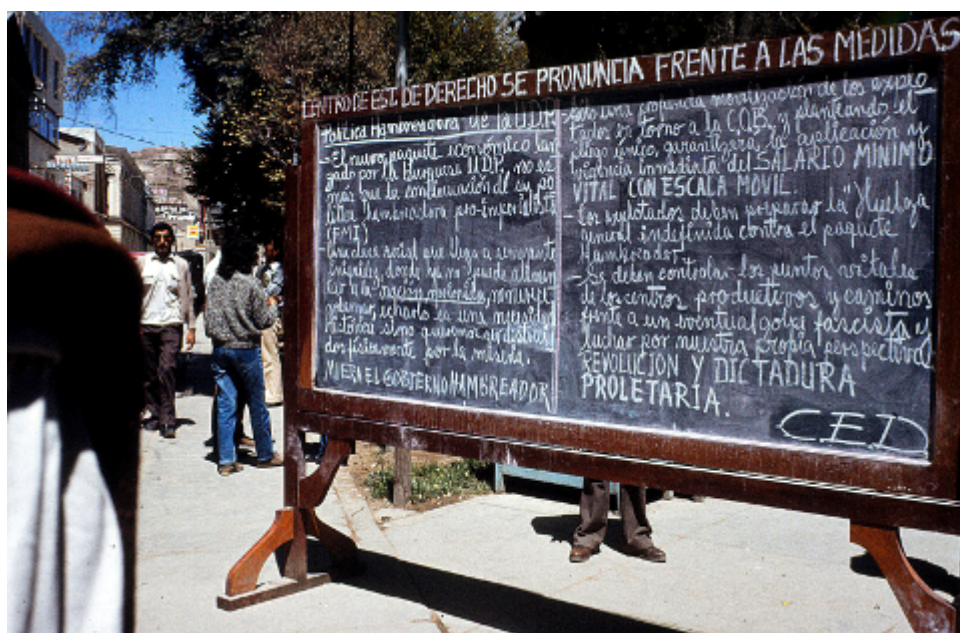 CENTRO DE EST. DE DERECHO SE PRONUNCIA FRENTE A LAS MEDIDAS
Política Hambreadora de la U.D.P.
- El nuevo paquete económico lan
zado por la burguesa UDP, no es
más que la continuación de su po
lítica hambreadora pro-imperialista
(FMI)
Una clase social que llega a semejante
donde ya no puede
a la
gobernar, echarlo es una necesidad
histórica si no queremos ser destruí
dos físicamente por la miseria.
MUERA EL GOBIERNO HAMBREADOR
- Sólo una profunda movilización de los explo
tados en torno a la C.O.B. y planteando el
pliego único, garantizara la aplicación y
vigencia inmediata del SALARIO MINIMO
VITAL CON ESCALA MOVIL.
- Los explotados deben preparar la Huelga
General indefinida contra el paquete
Hambreador.
- Se deben controlar los puntos vitales
de los centros productivos y caminos
frente a un eventual golpe fascista y
luchar por nuestra propia perspectiva
REVOLUCION Y DICTADURA
PROLETARIA.
CED